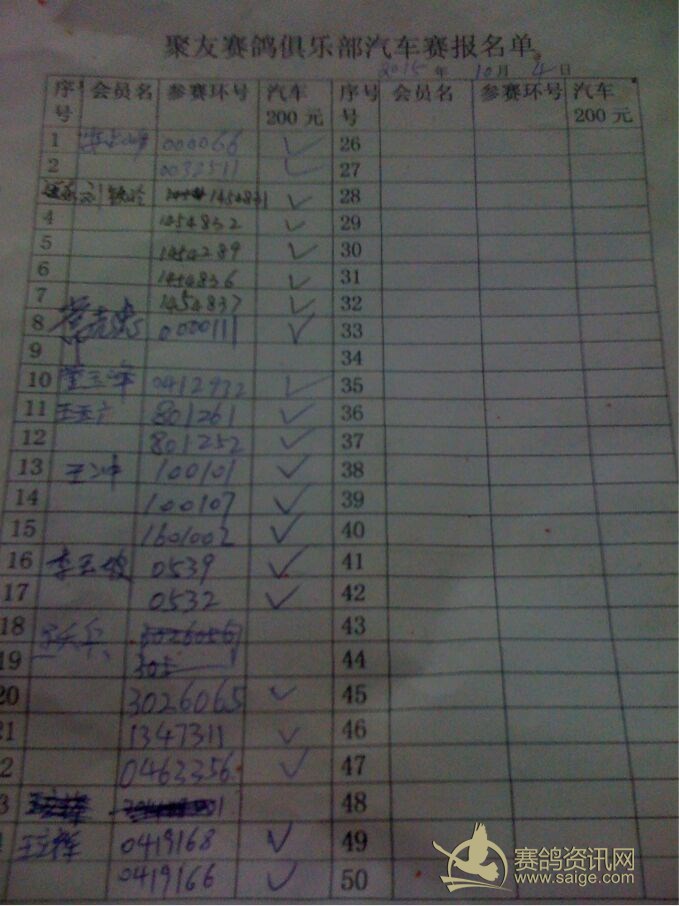 聚友赛鸽俱乐部汽车赛报名单
2015 年 10 月 4 日
序号 会员名 参赛环号 汽车200元 序号 会员名 参赛环号 汽车200元
1 000066 ✓ 26
2 0032511 ✓ 27
1454831 ✓ 28
4 1454832 ✓ 29
5 1454289 ✓ 30
6 1454836 ✓ 31
7 1454837 ✓ 32
8 0000111 ✓ 33
9 34
10 0412932 ✓ 35
11 王玉广 801261 ✓ 36
12 801252 ✓ 37
13 王冲 100101 ✓ 38
14 100107 ✓ 39
15 1601002 ✓ 40
16 0539 ✓ 41
17 0532 ✓ 42
18 43
19 44
20 3026065 ✓ 45
21 1347311 ✓ 46
2 0463356 ✓ 47
3 48
王立辉 0419168 ✓ 49
0419166 ✓ 50
赛鸽资讯网
www.saige.com